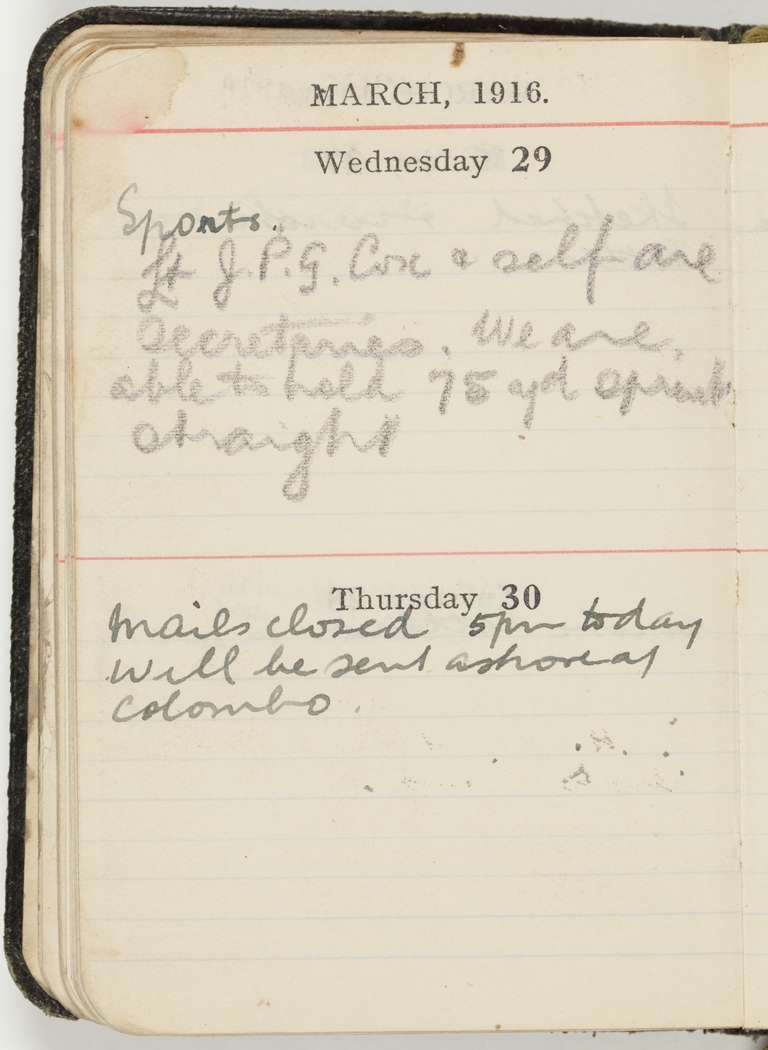 MARCH, 1916.
Wednesday 29
Sports.
Lt J.P.G. Cox & self are
Secretaries. We are
able to hold 75 yd sprint
straight
Thursday 30
Mails closed 5pm today
Will be sent ashore at
Colombo.